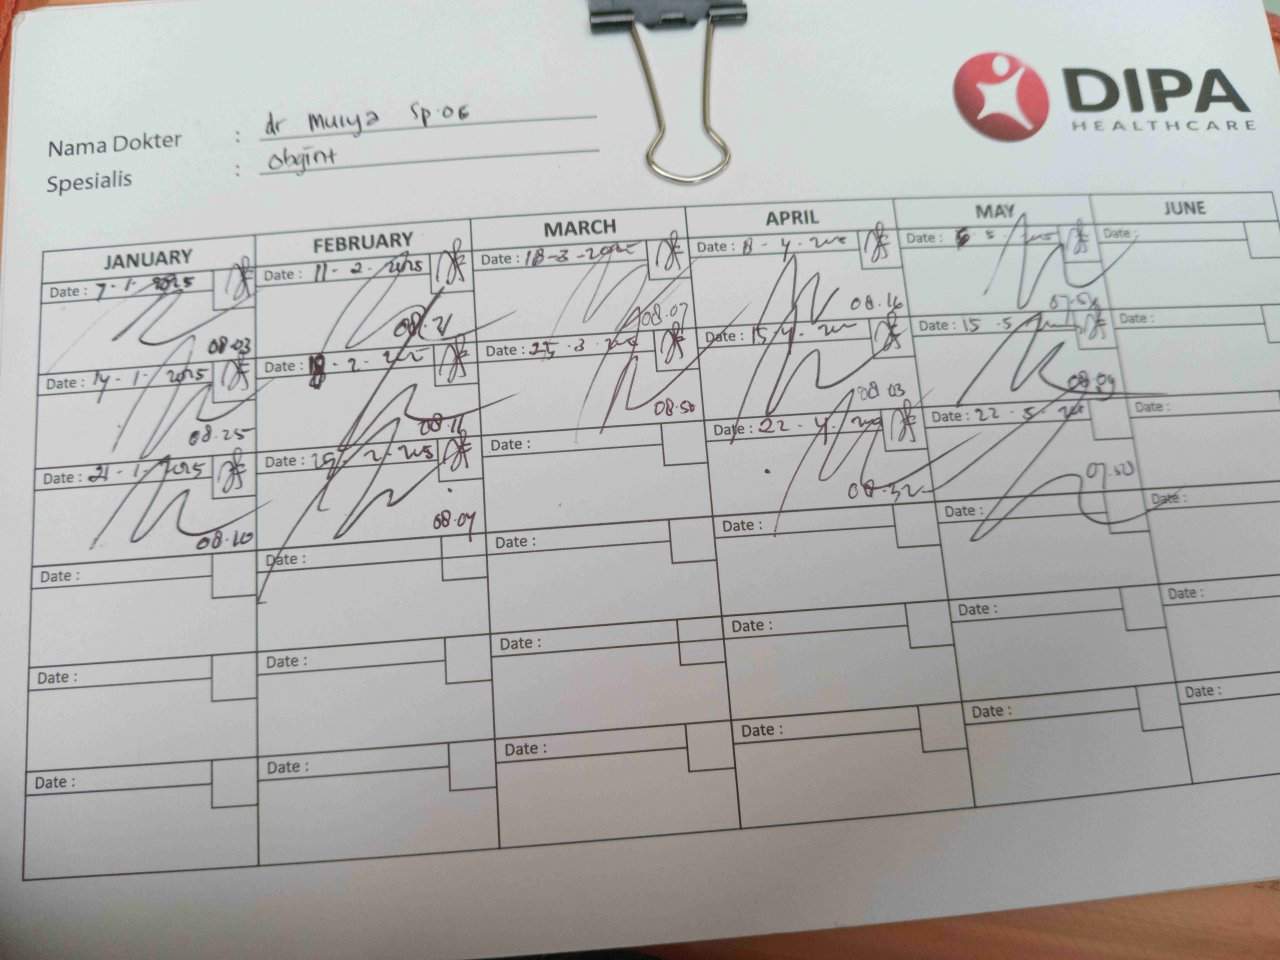 DIPA
HEALTHCARE
Nama Dokter : dr Mulya Sp.OG
Spesialis : Obgint
JANUARY FEBRUARY MARCH APRIL MAY JUNE
Date : 7-1-2025 Date : 11-2-2025 Date : 18-3-2025 Date : 8-4- Date : Date :
08.03 08.21 08.07 08.16 07.54
Date : 14-1-2025 Date : 18-2- Date : 25-3- Date : 15-4- Date : 15-5- Date :
08.25 08.16 08.50 08.03 08.09
Date : 21-1-2025 Date : 25-2-2025 Date : Date : 22-4- Date : 22-5- Date :
08.10 08.04 08.32 07.50
Date : Date : Date : Date : Date : Date :
Date : Date : Date : Date : Date : Date :
Date : Date : Date : Date : Date : Date :